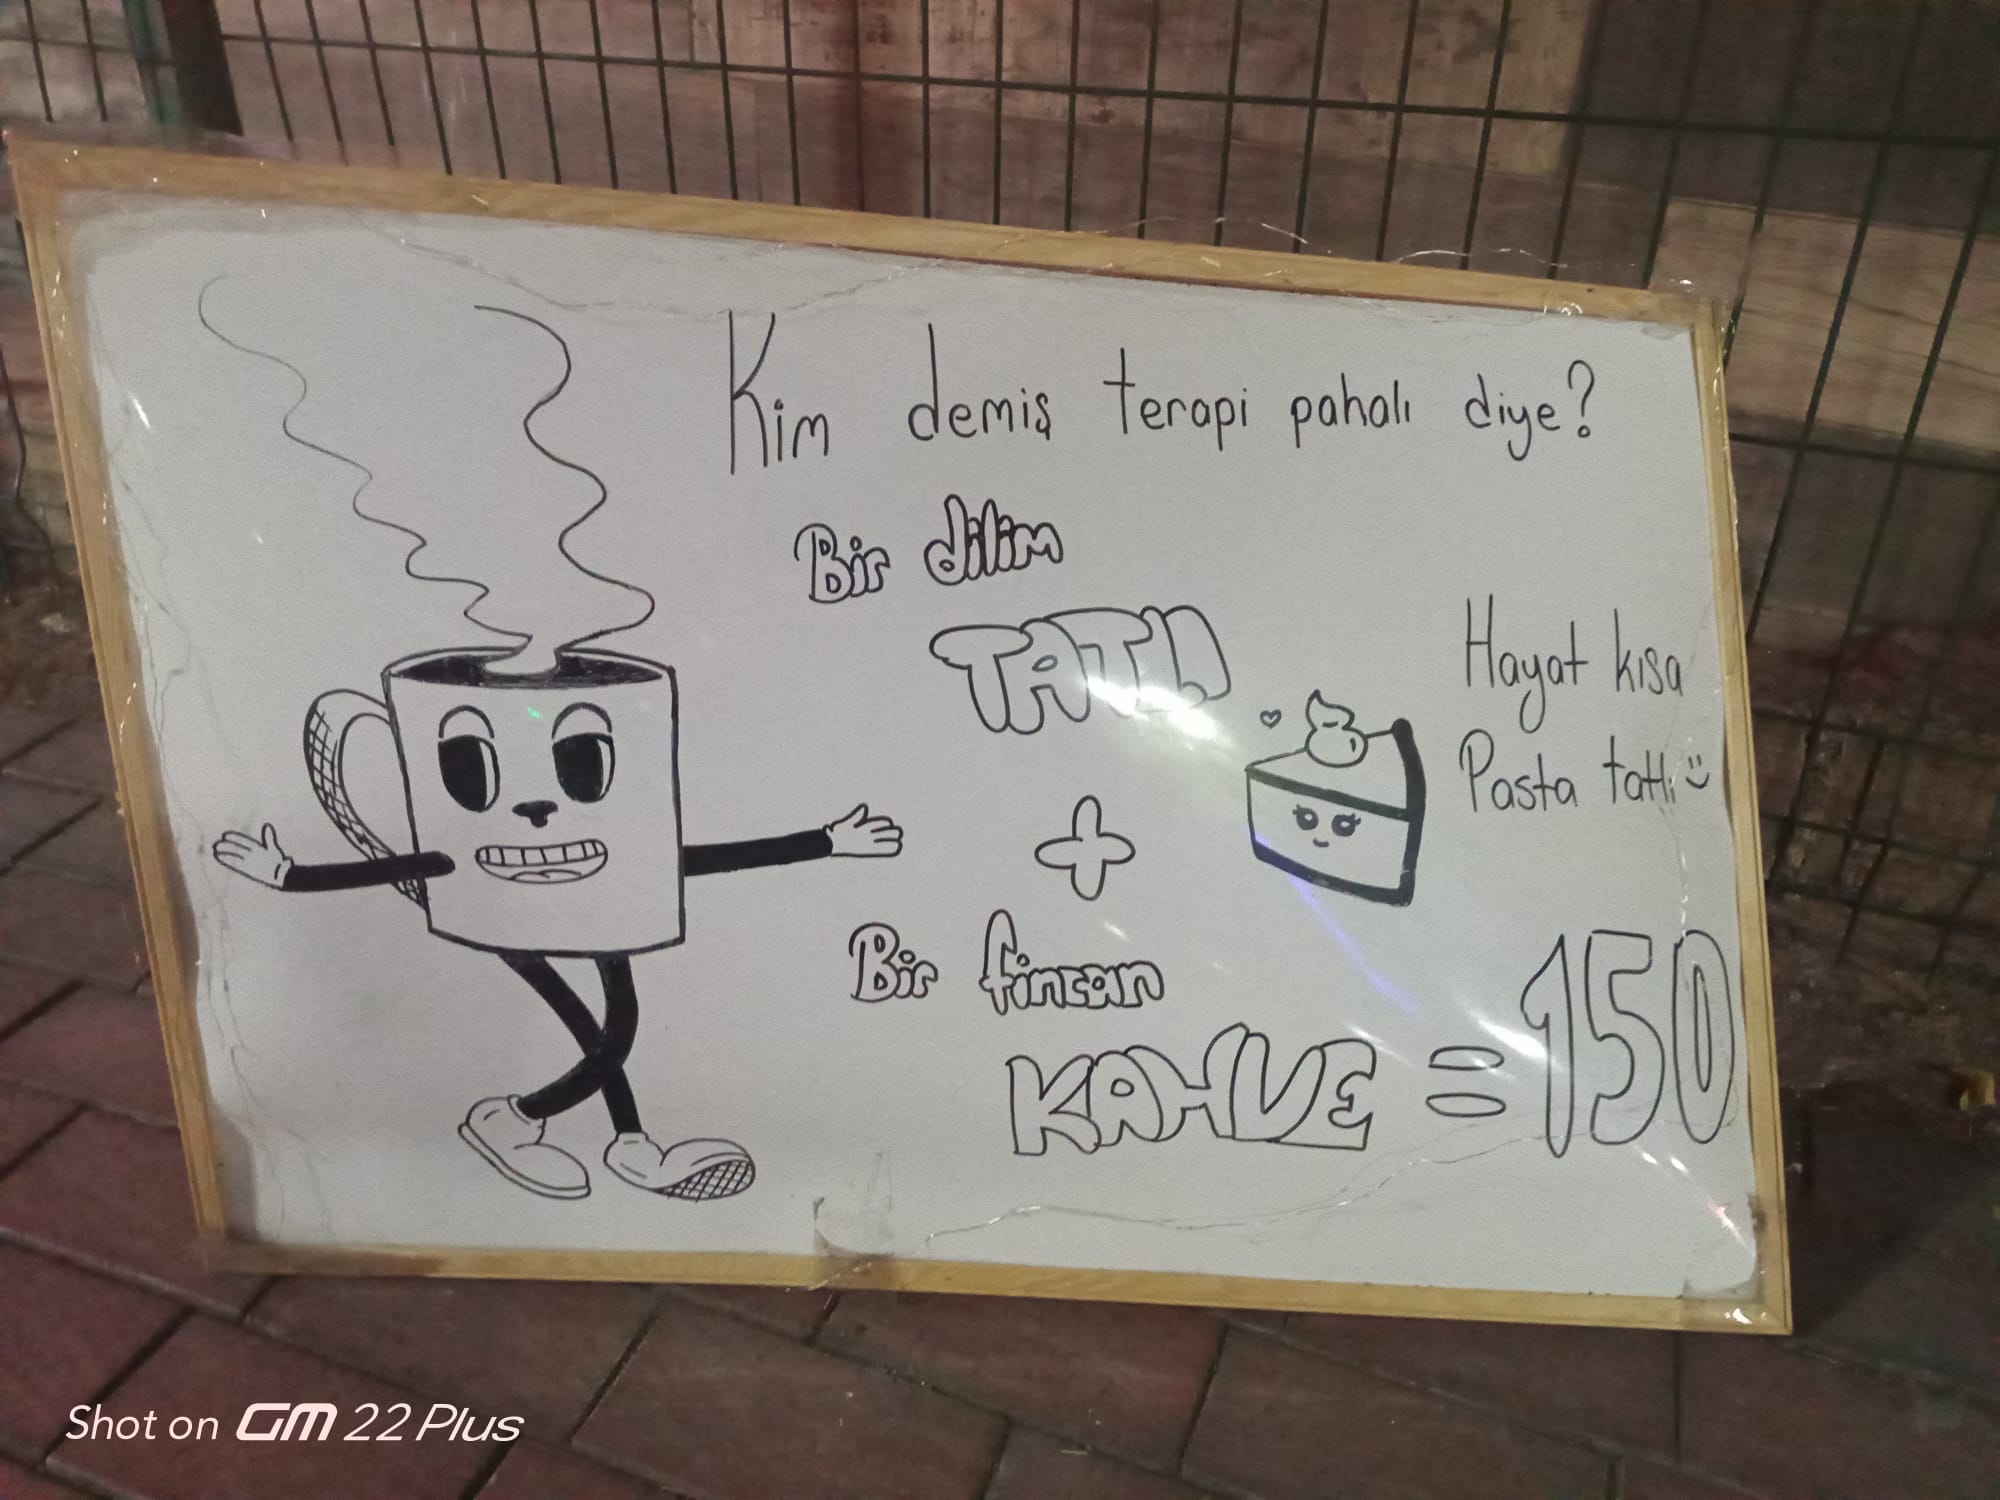 Kim demiş terapi pahalı diye?
Bir dilim
TATLI
Hayat kısa
Pasta tatlı :)
+
Bir fincan
KAHVE = 150
Shot on GM 22 Plus